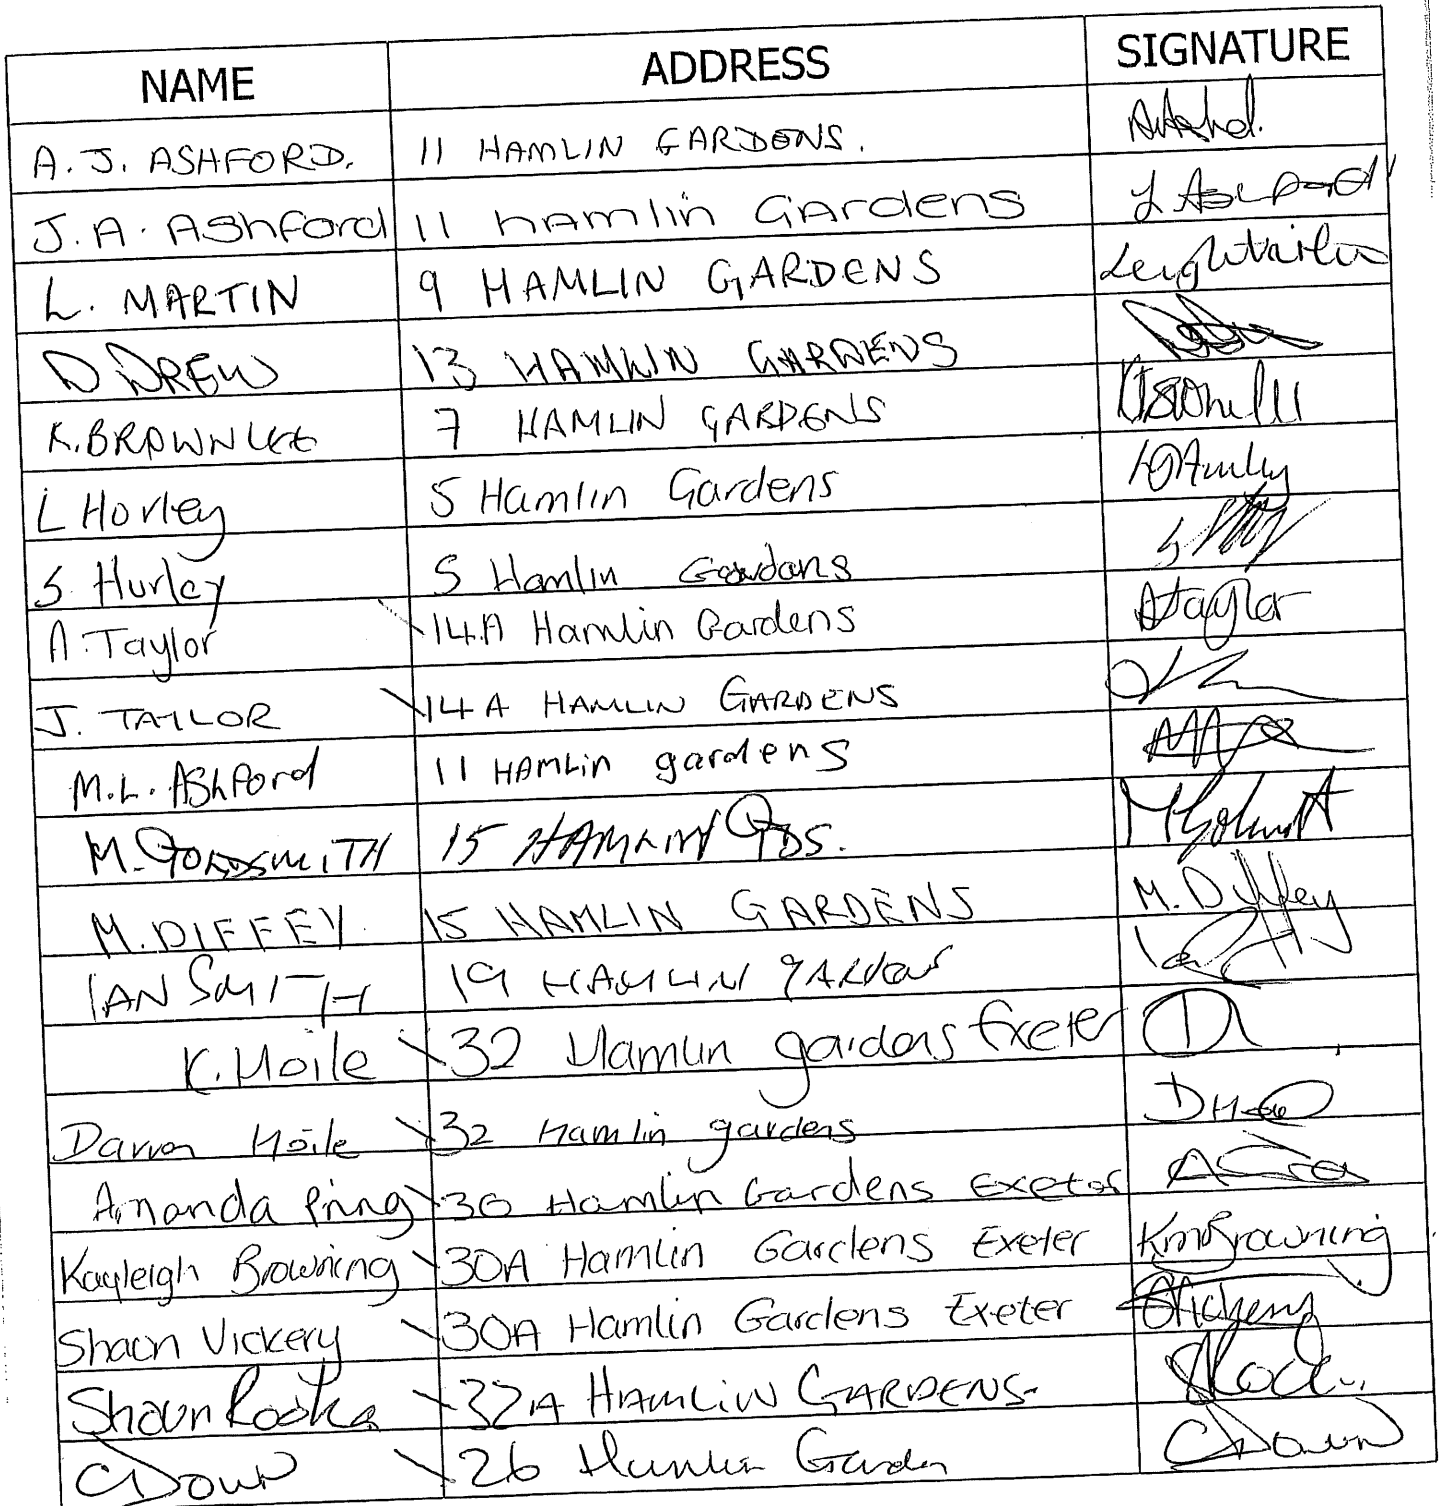 NAME ADDRESS SIGNATURE
A. J. ASHFORD. 11 HAMLIN GARDENS.
J. A. Ashford 11 hamlin Gardens
L. MARTIN 9 HAMLIN GARDENS
D DREW 13 HAMLIN GARDENS
K. BROWNLEE 7 HAMLIN GARDENS
L Horley 5 Hamlin Gardens
S. Hurley 5 Hamlin Gardens
A. Taylor 14A Hamlin Gardens A Taylor
J. TAYLOR 14A HAMLIN GARDENS
M.L. Ashford 11 HAMLin gardens
M. GOLDSMITH 15 HAMLIN GDS.
M. DIFFEY 15 HAMLIN GARDENS M. Diffey
IAN SMITH 19 HAMLIN GARDENS
K. Hoile 32 Hamlin gardens Exeter
Darren Hoile 32 Hamlin gardens
Amanda Pring 30 Hamlin Gardens Exeter
Kayleigh Browning 30A Hamlin Gardens Exeter KmBrowning
Shaun Vickery 30A Hamlin Gardens Exeter
Shaun 32A HAMLIN GARDENS.
26 Hamlin Garden